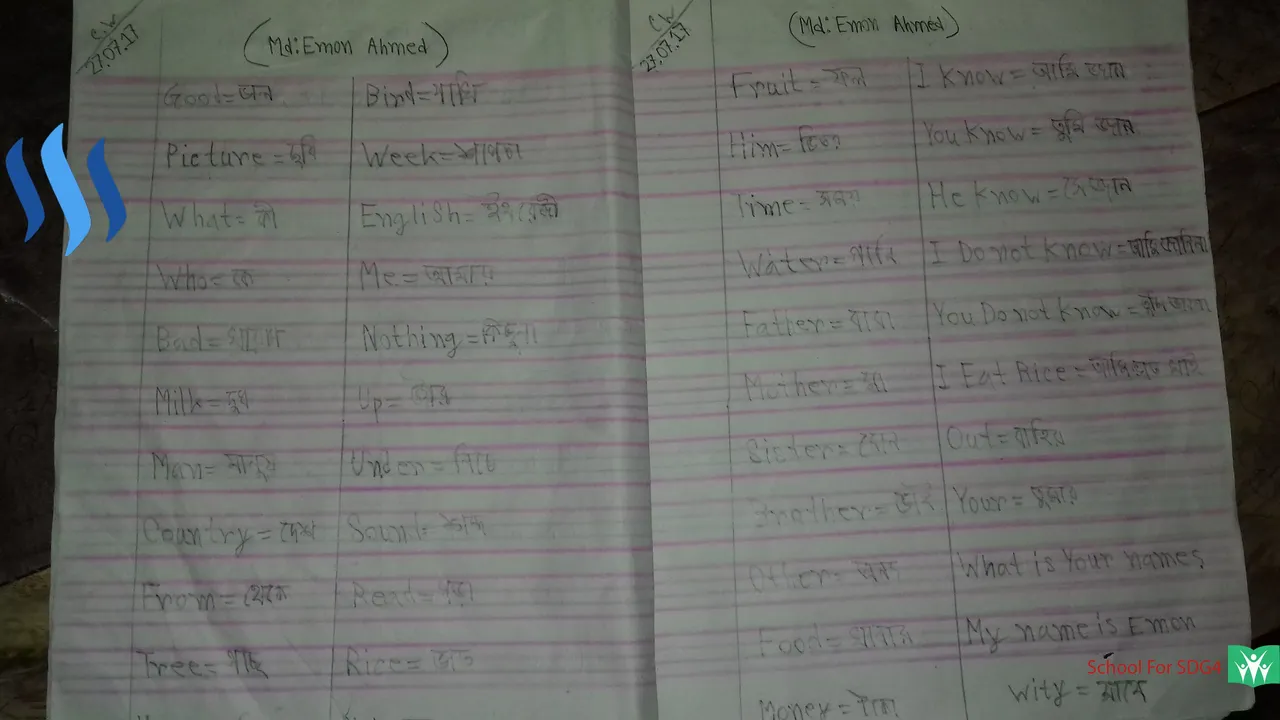 C.W
27.07.17
(Md: Emon Ahmed)
Good=
Picture = ছবি
What= কী
Who= কে
Bad=
Milk= দুধ
Man= মানুষ
Country = দেশ
From= থেকে
Tree= গাছ
Bird= পাখি
Week=
English=
Me= আমার
Nothing=
Up= উপরে
Under= নিচে
Sound=
Read= পড়া
Rice= ভাত
C.W
27.07.17
(Md: Emon Ahmed)
Fruit = ফল
Him=
Time = সময়
Water= পানি
Father= বাবা
Mother= মা
Sister= বোন
Brother= ভাই
Other=
Food= খাবার
Money= টাকা
I Know = আমি জানি
You Know = তুমি জান
He Know = সে জান
I Do not Know = আমি জানিনা
You Do not Know = তুমি জাননা
I Eat Rice = আমি ভাত খাই
Out= বাহির
Your =
What is Your names
My name is Emon
wity = সাথে
School For SDG4